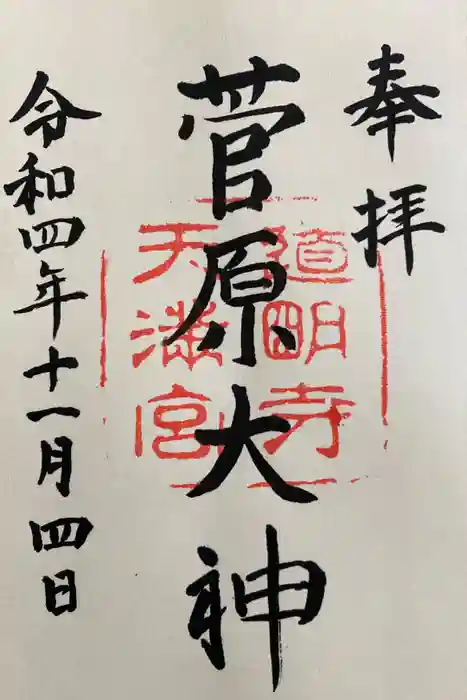 奉拝
菅原大神
道明寺
天満宮
令和四年十一月四日